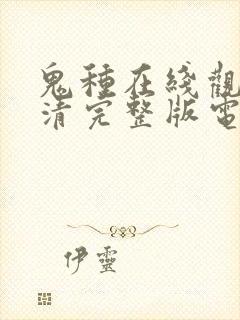 鬼種在綫觀
清完整版電
伊靈